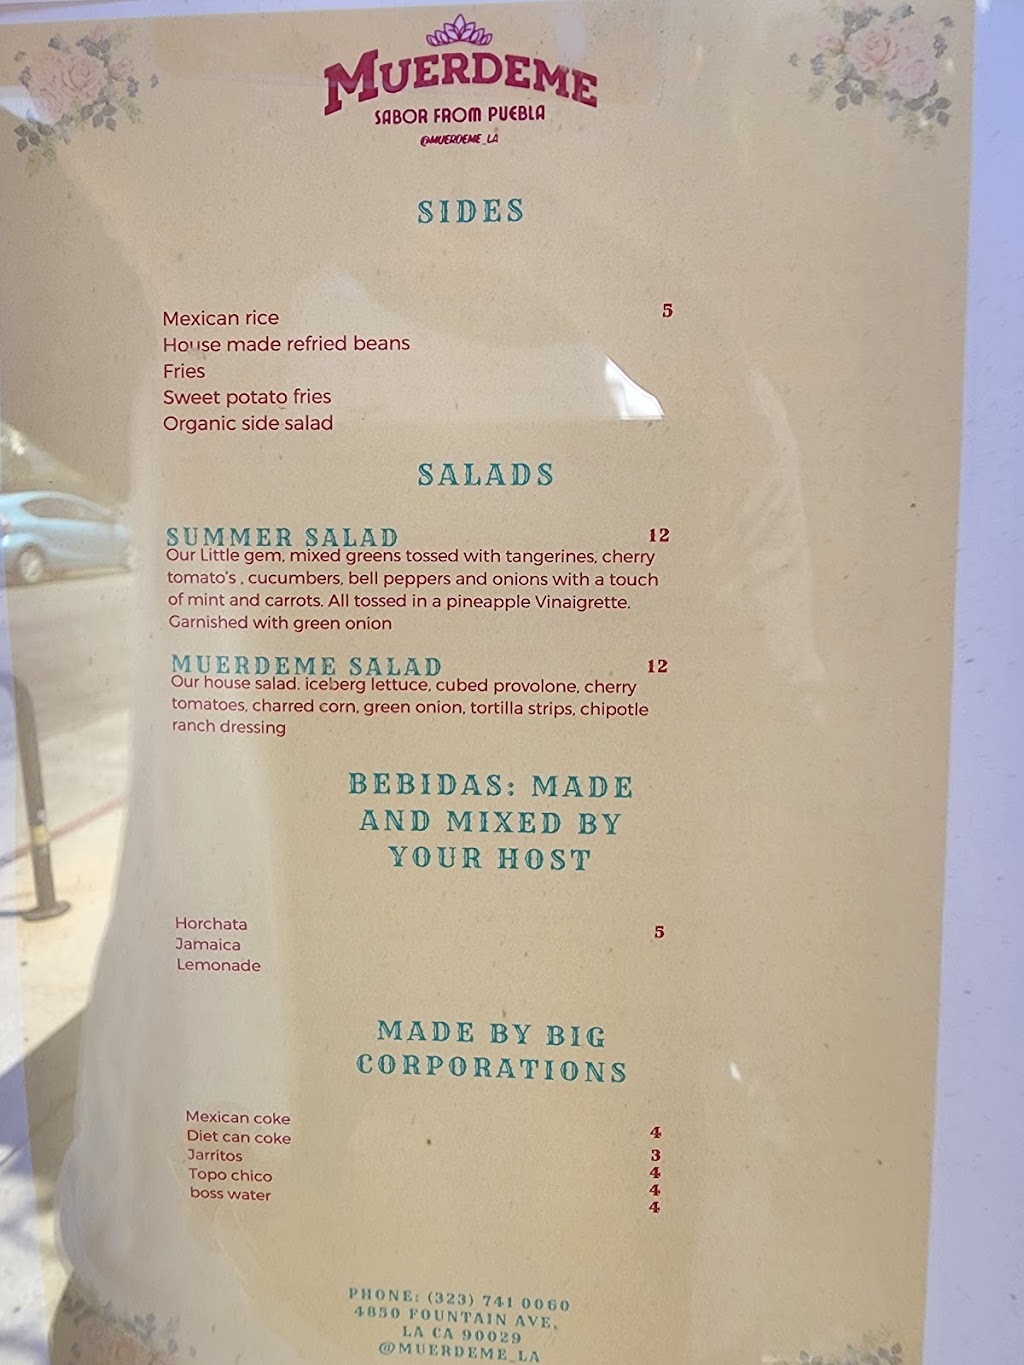 MUERDEME
SABOR FROM PUEBLA
@MUERDEME_LA
SIDES
Mexican rice 5
House made refried beans
Fries
Sweet potato fries
Organic side salad
SALADS
SUMMER SALAD 12
Our Little gem, mixed greens tossed with tangerines, cherry
tomato's , cucumbers, bell peppers and onions with a touch
of mint and carrots. All tossed in a pineapple Vinaigrette.
Garnished with green onion
MUERDEME SALAD 12
Our house salad. iceberg lettuce, cubed provolone, cherry
tomatoes, charred corn, green onion, tortilla strips, chipotle
ranch dressing
BEBIDAS: MADE
AND MIXED BY
YOUR HOST
Horchata 5
Jamaica
Lemonade
MADE BY BIG
CORPORATIONS
Mexican coke 4
Diet can coke 3
Jarritos 4
Topo chico 4
boss water 4
PHONE: (323) 741 0060
4850 FOUNTAIN AVE,
LA CA 90029
@MUERDEME_LA